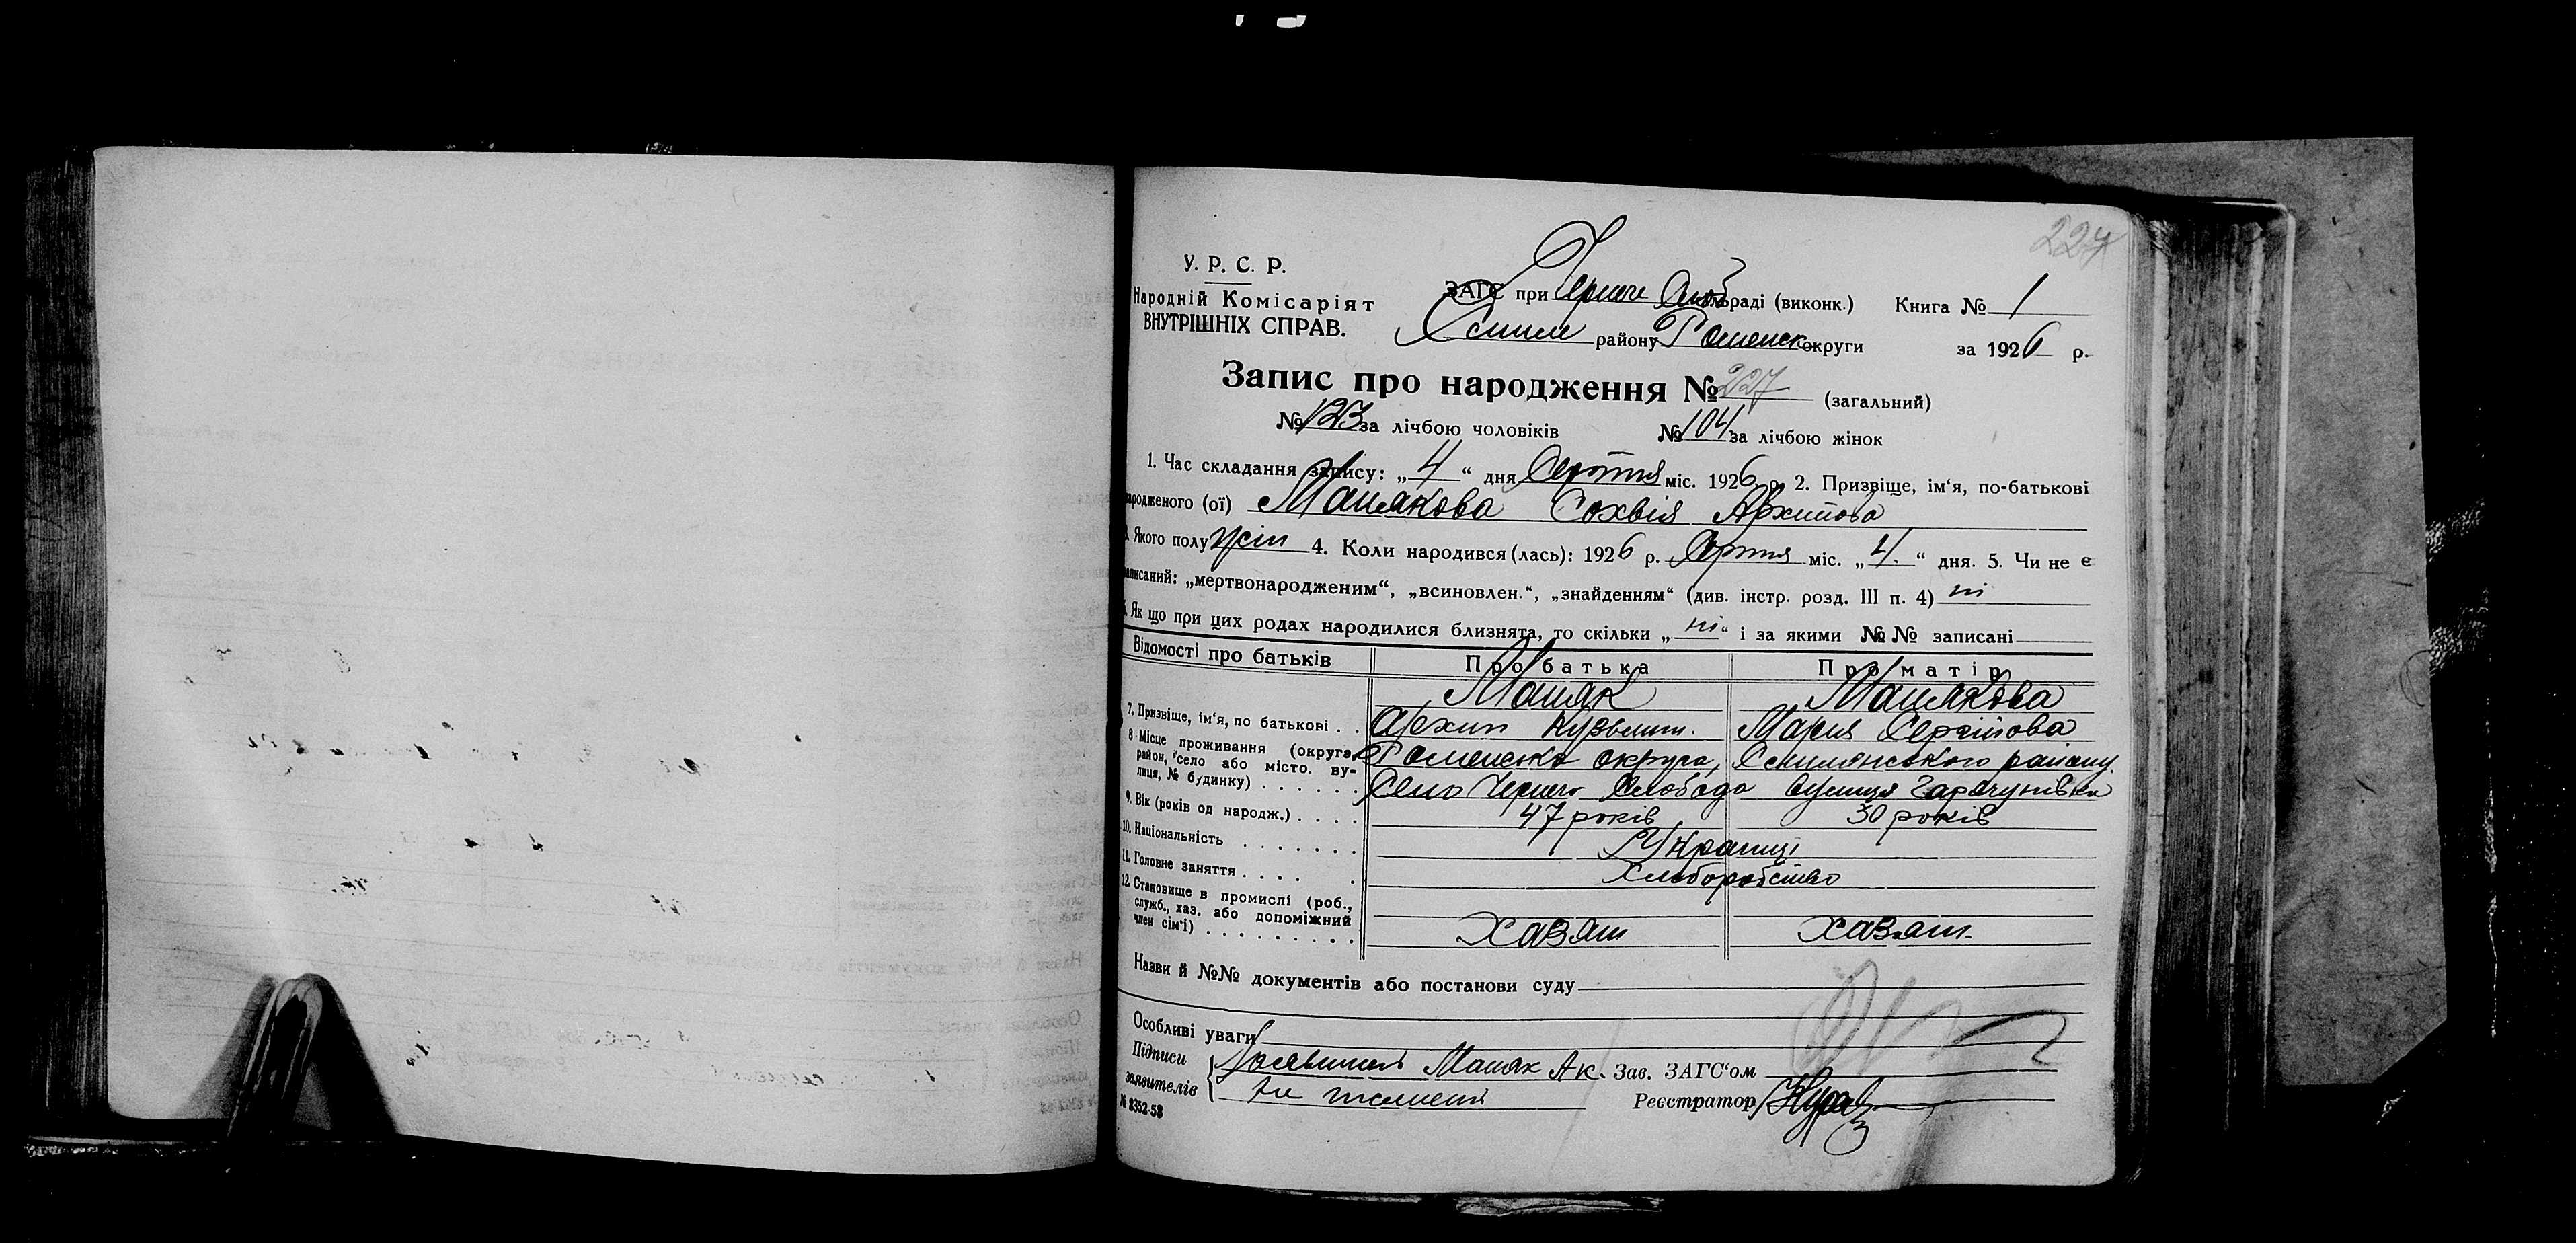 227
У. Р. С. Р.
Народній Комісаріят
ВНУТРІШНІХ СПРАВ.
ЗАГС при Чернеч Слоб раді (виконк.) Книга № 1
району Роменск округи за 1926 р.
Запис про народження № 227 (загальний)
№ 123 за лічбою чоловіків № 104 за лічбою жінок
1. Час складання запису: „4“ дня Серпня міс. 1926 р. 2. Призвіще, ім‘я, по-батькові
народженого (ої) Машякова Сохвія Архипова
Якого полу жін 4. Коли народився (лась): 1926 р. Серпня міс. „4.“ дня. 5. Чи не є
записаний: „мертвонародженим“, „всиновлен.“, „знайденням“ (див. інстр. розд. III п. 4) ні
Як що при цих родах народилися близнята, то скільки „ні“ і за якими №№ записані
Відомості про батьків Про батька Про матір
Машяк Машякова
7. Призвіще, ім‘я, по батькові . . Архип Кузьмич. Мария Сергійова
8. Місце проживання (округа, район, село або місто. вулиця, № будинку) . . . . . . Роменська округа, району.
Село Чернеча Слобода вулиця
9. Вік (років од народж.) . . . . 47 років 30 років
10. Національність . . . . . . . Українці
11. Головне заняття . . . . . Хлоборобство
12. Становище в промислі (роб., служб., хаз. або допоміжний член сім‘ї) . . . . . . . . . хазяін хазяін.
Назви й №№ документів або постанови суду
Особливі уваги
Підписи заявителів { Машяк Ак. Зав. ЗАГС‘ом
Реєстратор
№ 8352-53